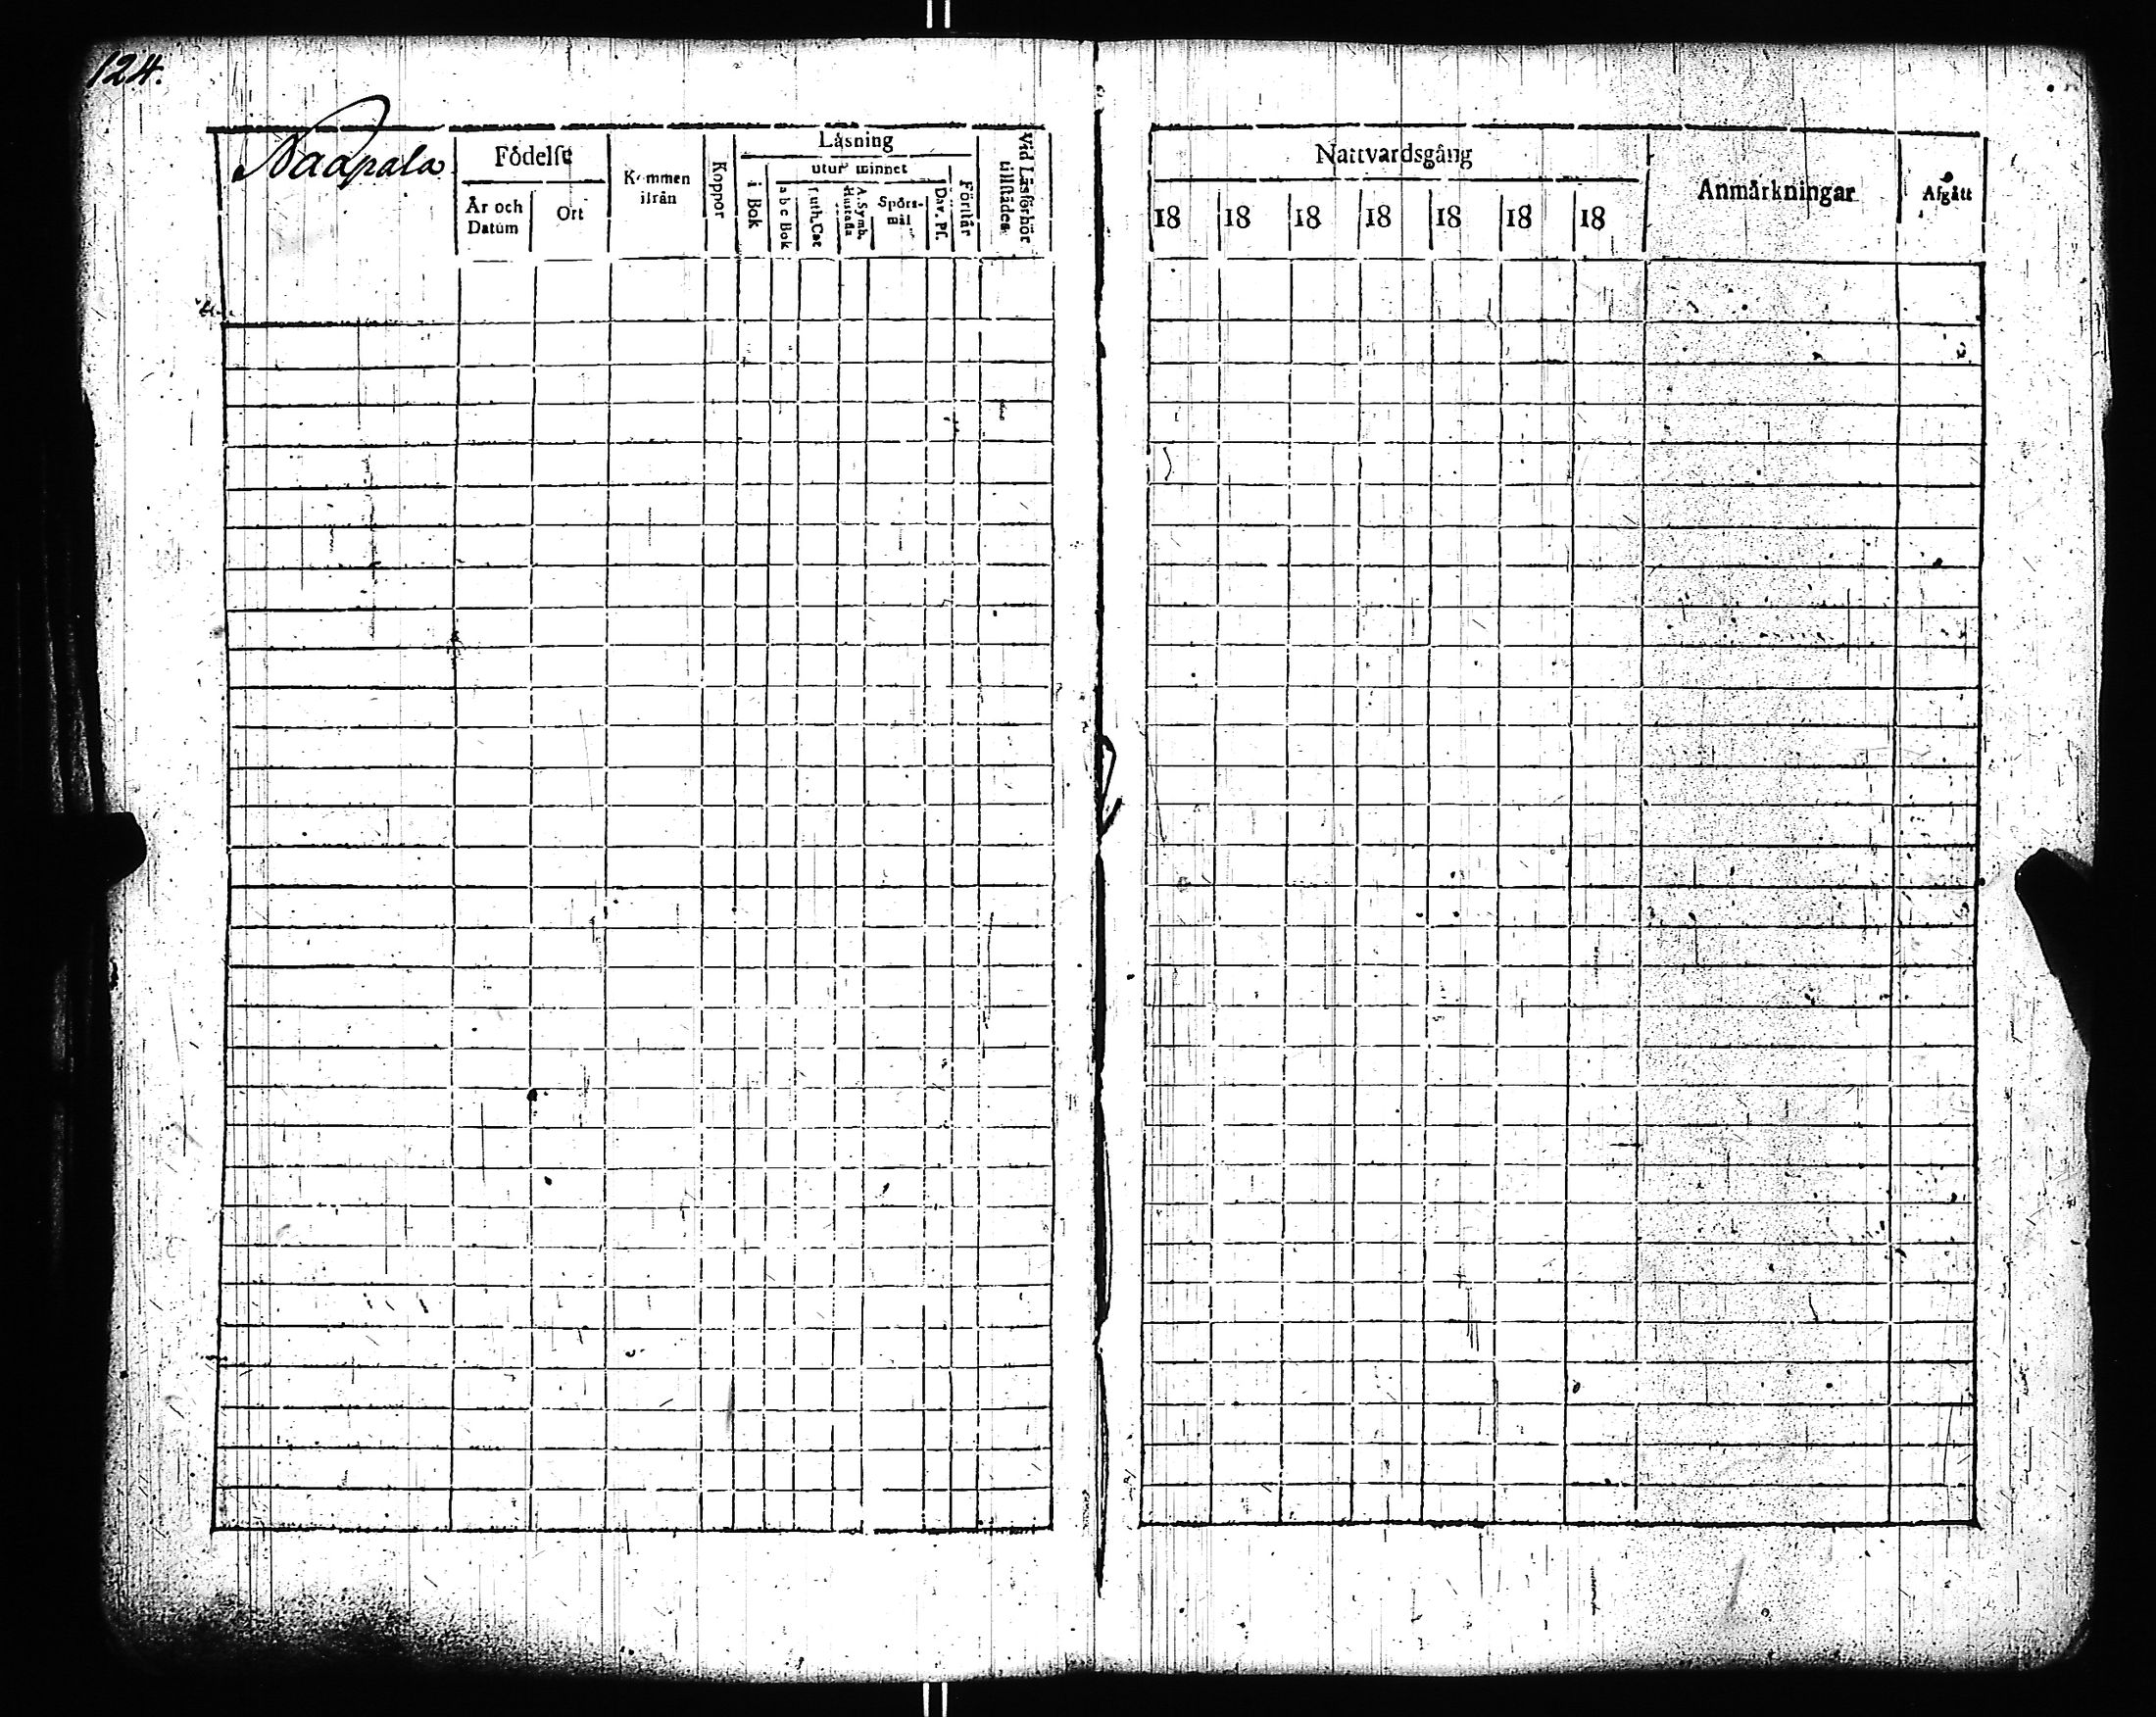 124.
Naapala
Födelse
År och Datum
Ort
Kommen ifrån
Koppor
Läsning
utur minnet
i Bok
a b c Bok
Luth. Cat
A. Symb. Hustafla
Spörsmål
Dav. Ps.
Förstår
Vid Läsförhör tillstädes
Nattvardsgång
18 18 18 18 18 18 18
Anmärkningar
Afgått